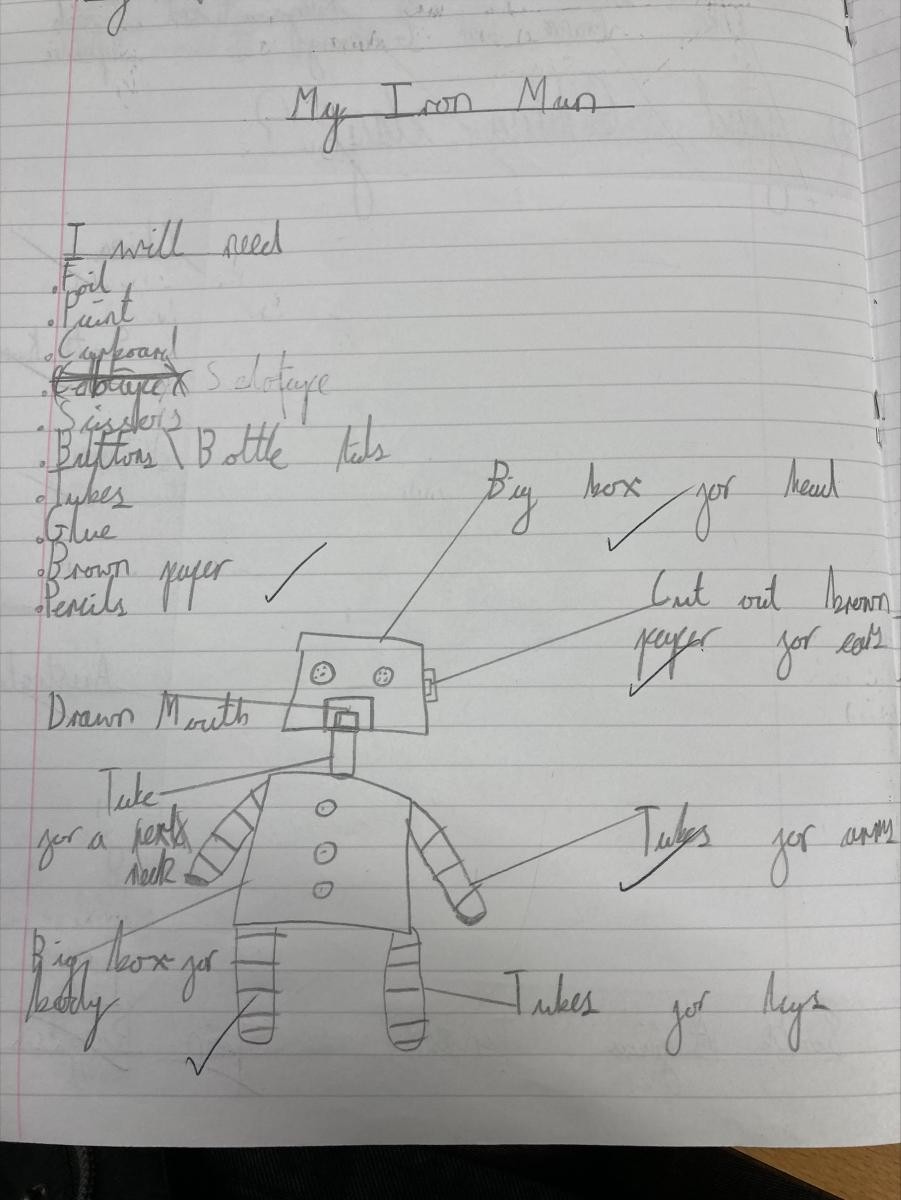 My Iron Man
I will need
. Foil
. Paint
. Carboard
. Selotape
. Scissers
. Buttons \ Bottle lids
. Tubes
. Glue
. Brown paper
. Pencils
Big box for head
Cut out brown
paper for ears
Drawn Mouth
Tube
for a
neck
Tubes for arms
Big box for
body
Tubes for legs